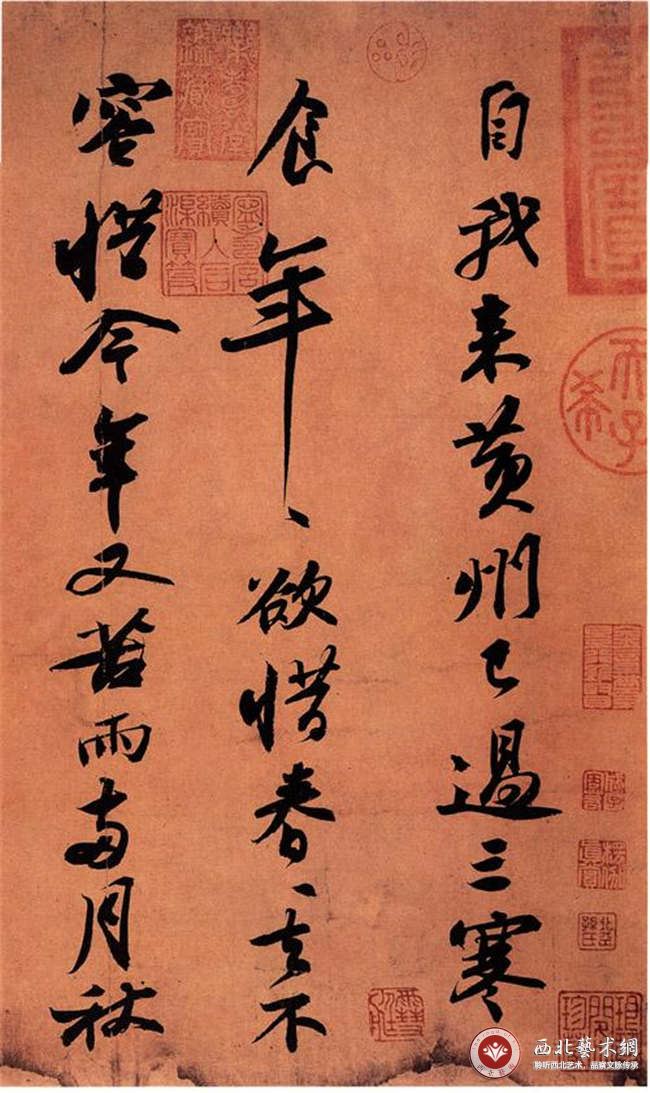 自我来黄州已過三寒
食年〻欲惜春〻去不
容惜今年又苦雨兩月秋
天子
希
西北藝术網
聆听西北艺术，品察文脉传承